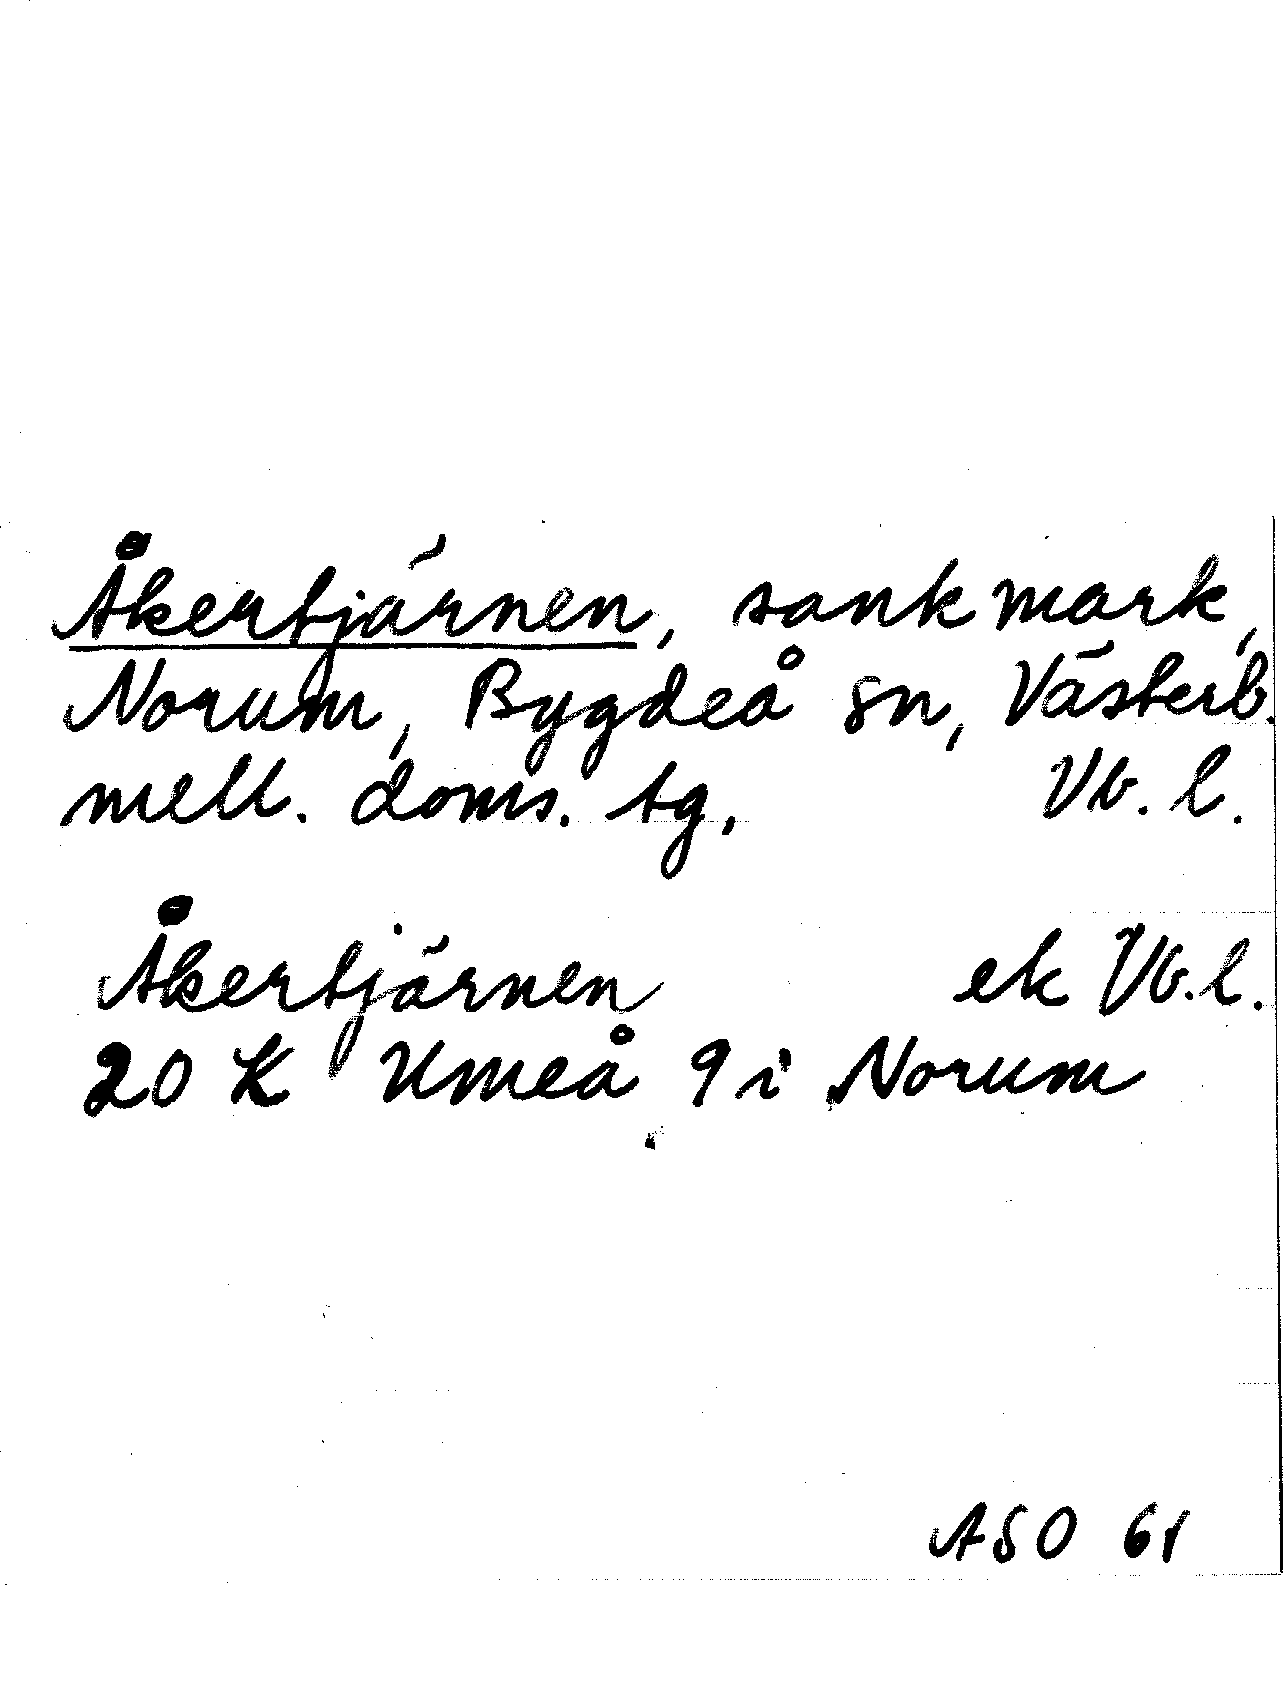 Åkertjärnen, sankmark,
Norum, Bygdeå sn, Västerb.
mell. doms. tg. Vb. l.
Åkertjärnen ek Vb. l.
20 K Umeå 9 i Norum
ASO 61